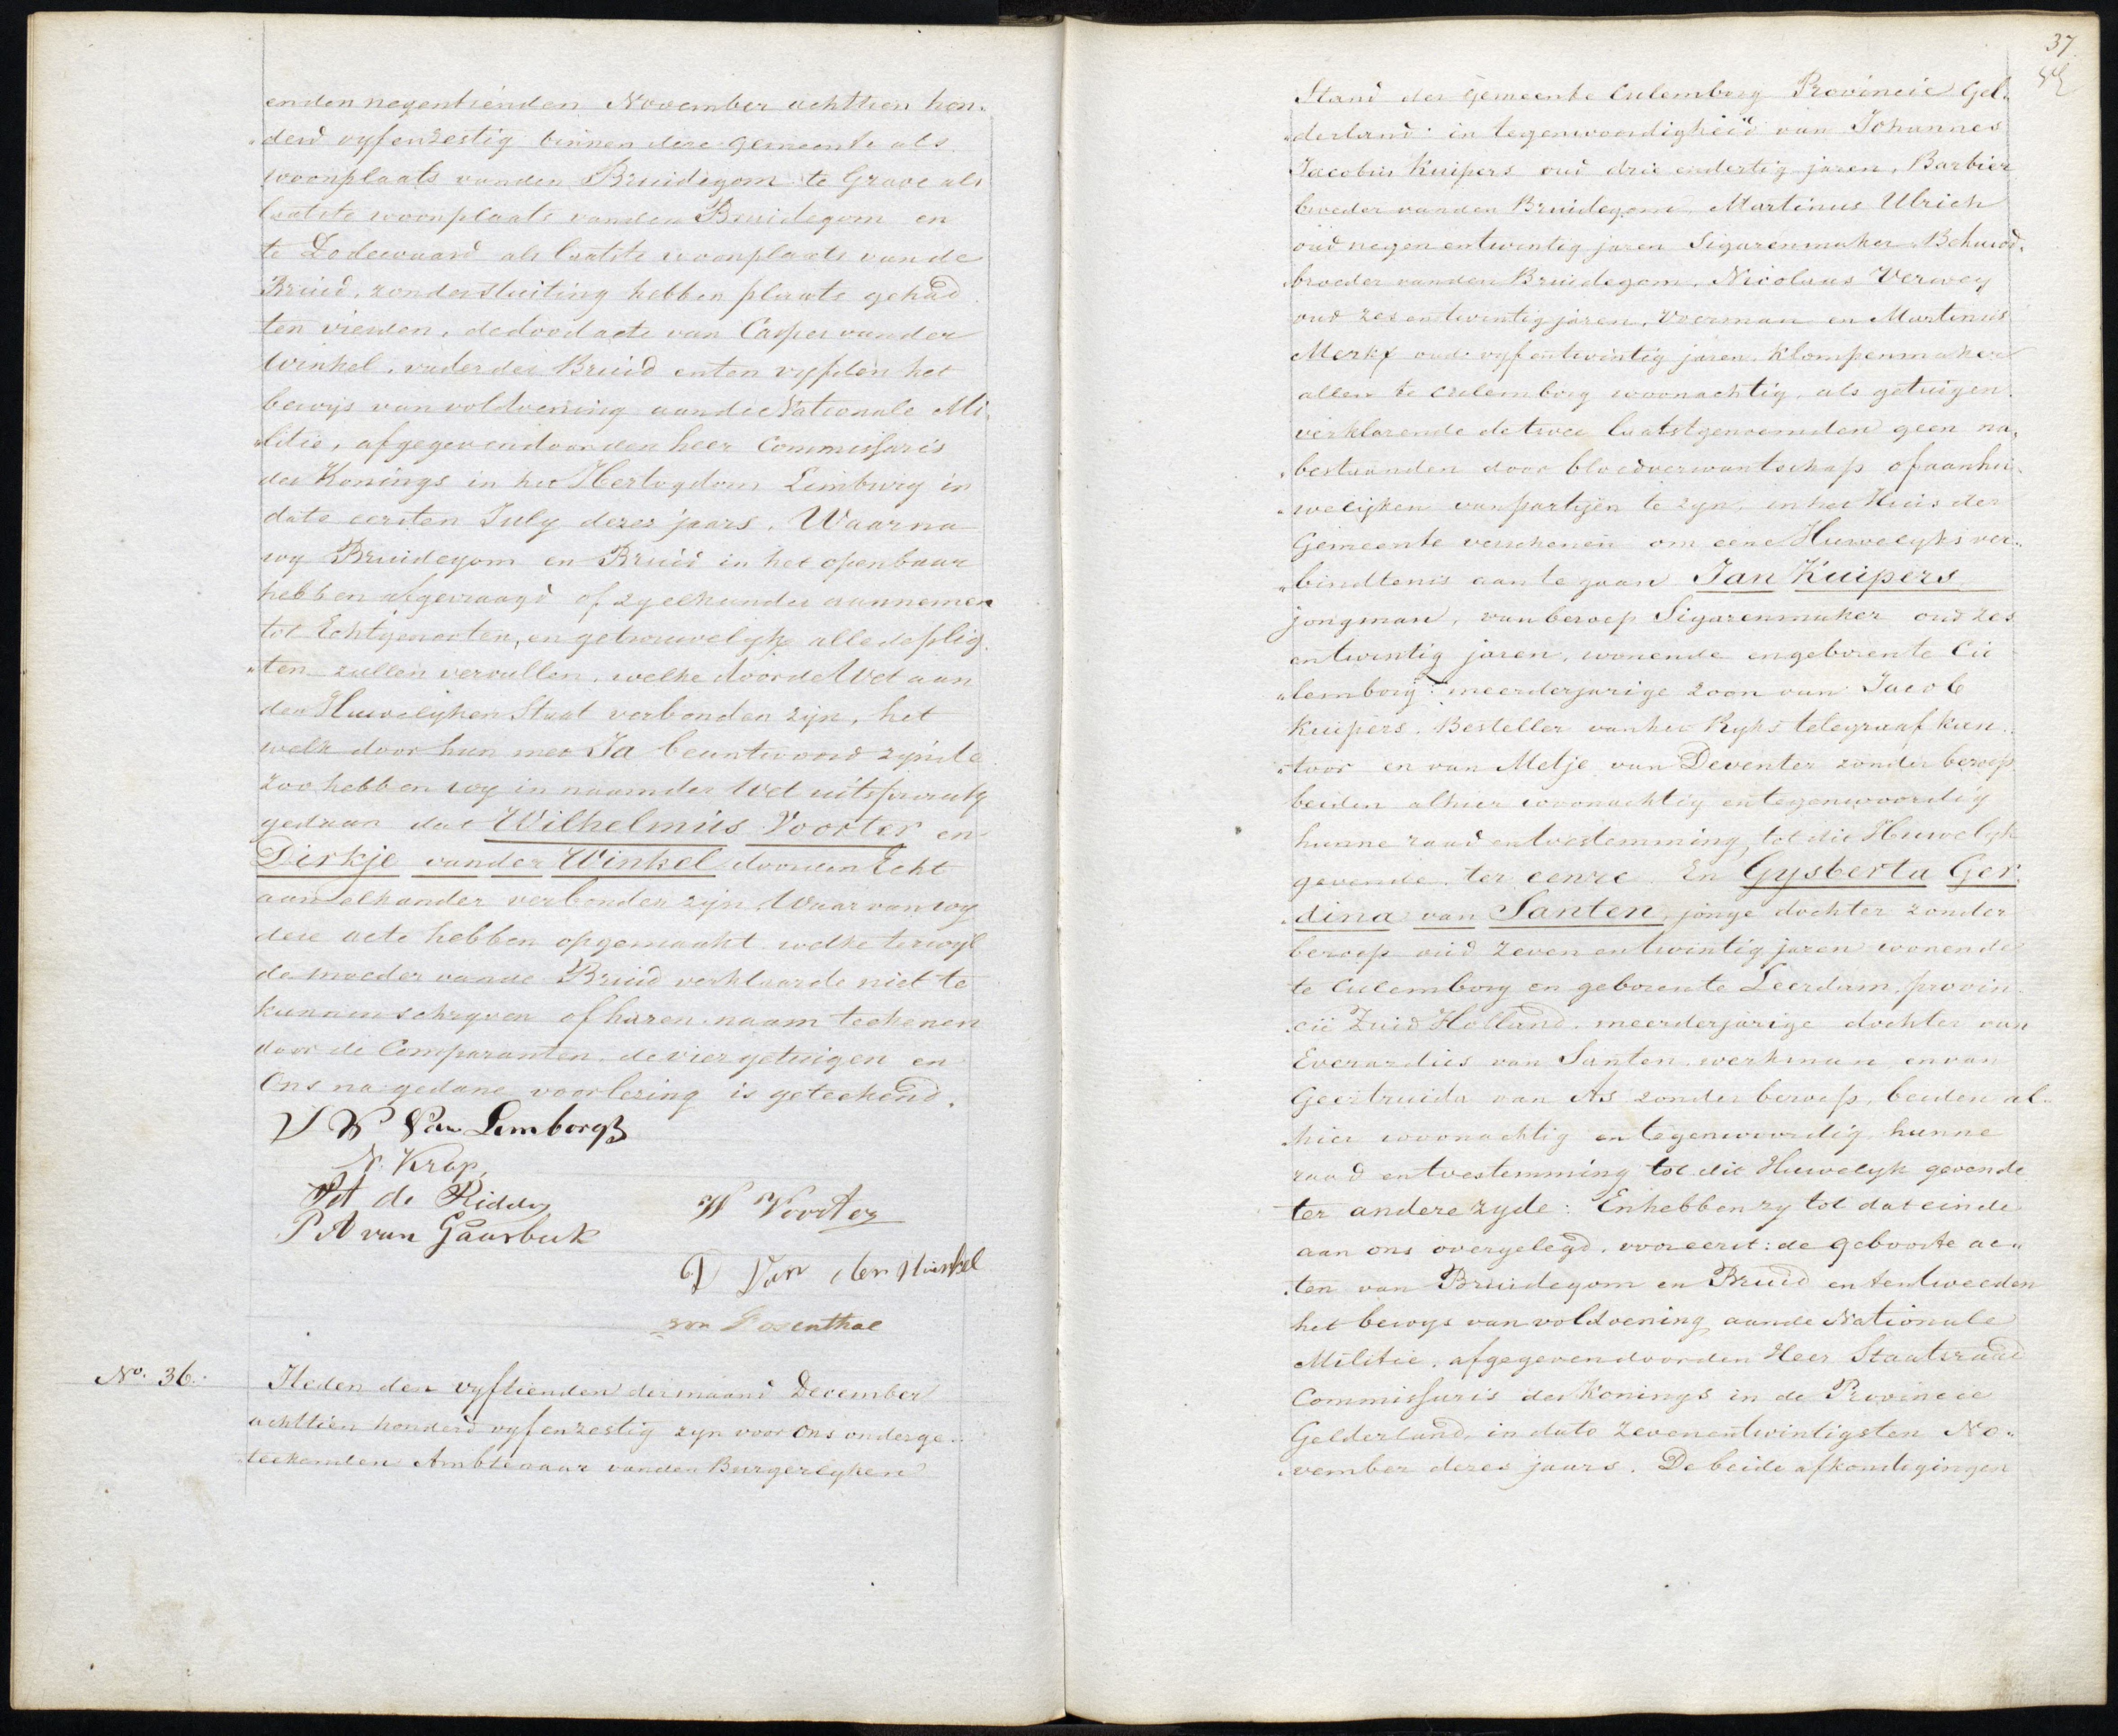 enden negentienden November achttien hon„
„derd vyfenzestig binnen deze gemeente als
woonplaats vanden Bruidegom te Grave als
laatste woonplaats vanden Bruidegom en
te Dodewaard als laatste woonplaats vande
Bruid, zonder stuiting hebben plaats gehad
ten vierden, de doodacte van Casper vander
Winkel, vader der Bruid en ten vyfden het
bewys van voldoening aande Nationale Mi„
„litie, afgegeven door den heer Commissaris
des Konings in het Hertogdom Limburg in
dato eersten July dezes jaars. Waarna
wy Bruidegom en Bruid in het openbaar
hebben afgevraagd of zy elkander aannemen
tot Echtgenooten, en getrouwelyk alle de plig„
„ten zullen vervullen, welke door de Wet aan
den Huwelyken Staat verbonden zyn, het
welk door hun met Ja beantwoord zynde
zoo hebben wy in naam der Wet uitspraak
gedaan dat Wilhelmus Voorter en
Dirkje vander Winkel door den Echt
aan elkander verbonden zyn. Waar van wy
deze acte hebben opgemaakt welke terwyl
de moeder vande Bruid verklaarde niet te
kunnen schryven of haren naam teekenen
door de Comparanten de vier getuigen en
Ons na gedane voorlezing is geteekend.
N. Krop
P A van Gaasbeek
W Voorter
D Van der Winkel
von Rosenthal
No. 36.
Heden den vyftienden der maand December
achttien honderd vyfenzestig zyn voor Ons onderge„
teekenden Ambtenaar vanden Burgerlyken
37
Stand der Gemeente Culemborg Provincie Gel„
„derland: in tegenwoordigheid van Johannes
Jacobus Kuipers oud drie endertig jaren, Barbier
broeder vanden Bruidegom, Martinus Ulrich
oud negen entwintig jaren Sigarenmaker Behuwd„
broeder vanden Bruidegom, Nicolaas Verwey
oud zes entwintig jaren, Voerman en Martinus
Merkx oud vyf entwintig jaren Klompenmaker
allen te Culemborg woonachtig, als getuigen
verklarende de twee laatstgenoemden geen na„
„bestaanden door bloedverwantschap of aanhu„
„welijken van partyen te zyn, in het Huis der
Gemeente verschenen om eene Huwelyks ver„
„bindtenis aan te gaan Jan Kuipers
jongman, van beroep Sigarenmaker oud zes
entwintig jaren, wonende en geboren te Cu
„lemborg: meerderjarige zoon van Jacob
Kuipers, Besteller van het Ryks telegraaf kan„
„toor en van Metje van Deventer zonder beroep
beiden alhier woonachtig en tegenwoordig
hunne raad en toestemming tot dit Huwelyk
gevende, ter eenre. En Gysberta Ger„
„dina van Santen, jonge dochter zonder
beroep oud zeven entwintig jaren wonende
te Culemborg en geboren te Leerdam, provin„
„cie Zuid Holland, meerderjarige dochter van
Everardus van Santen werkman en van
Geertruida van As zonder beroep, beiden al„
„hier woonachtig en tegenwoordig hunne
raad en toestemming tot dit Huwelyk gevende
ter andere zyde: En hebben zy tot dat einde
aan ons overgelegd, vooreerst: de geboorte ac„
„ten van Bruidegom en Bruid en ten tweeden
het bewys van voldoening aande Nationale
Militie, afgegeven door den Heer Staatsraad
Commissaris des Konings in de Provincie
Gelderland, in dato zevenentwintigsten No„
„vember dezes jaars. De beide afkondigingen